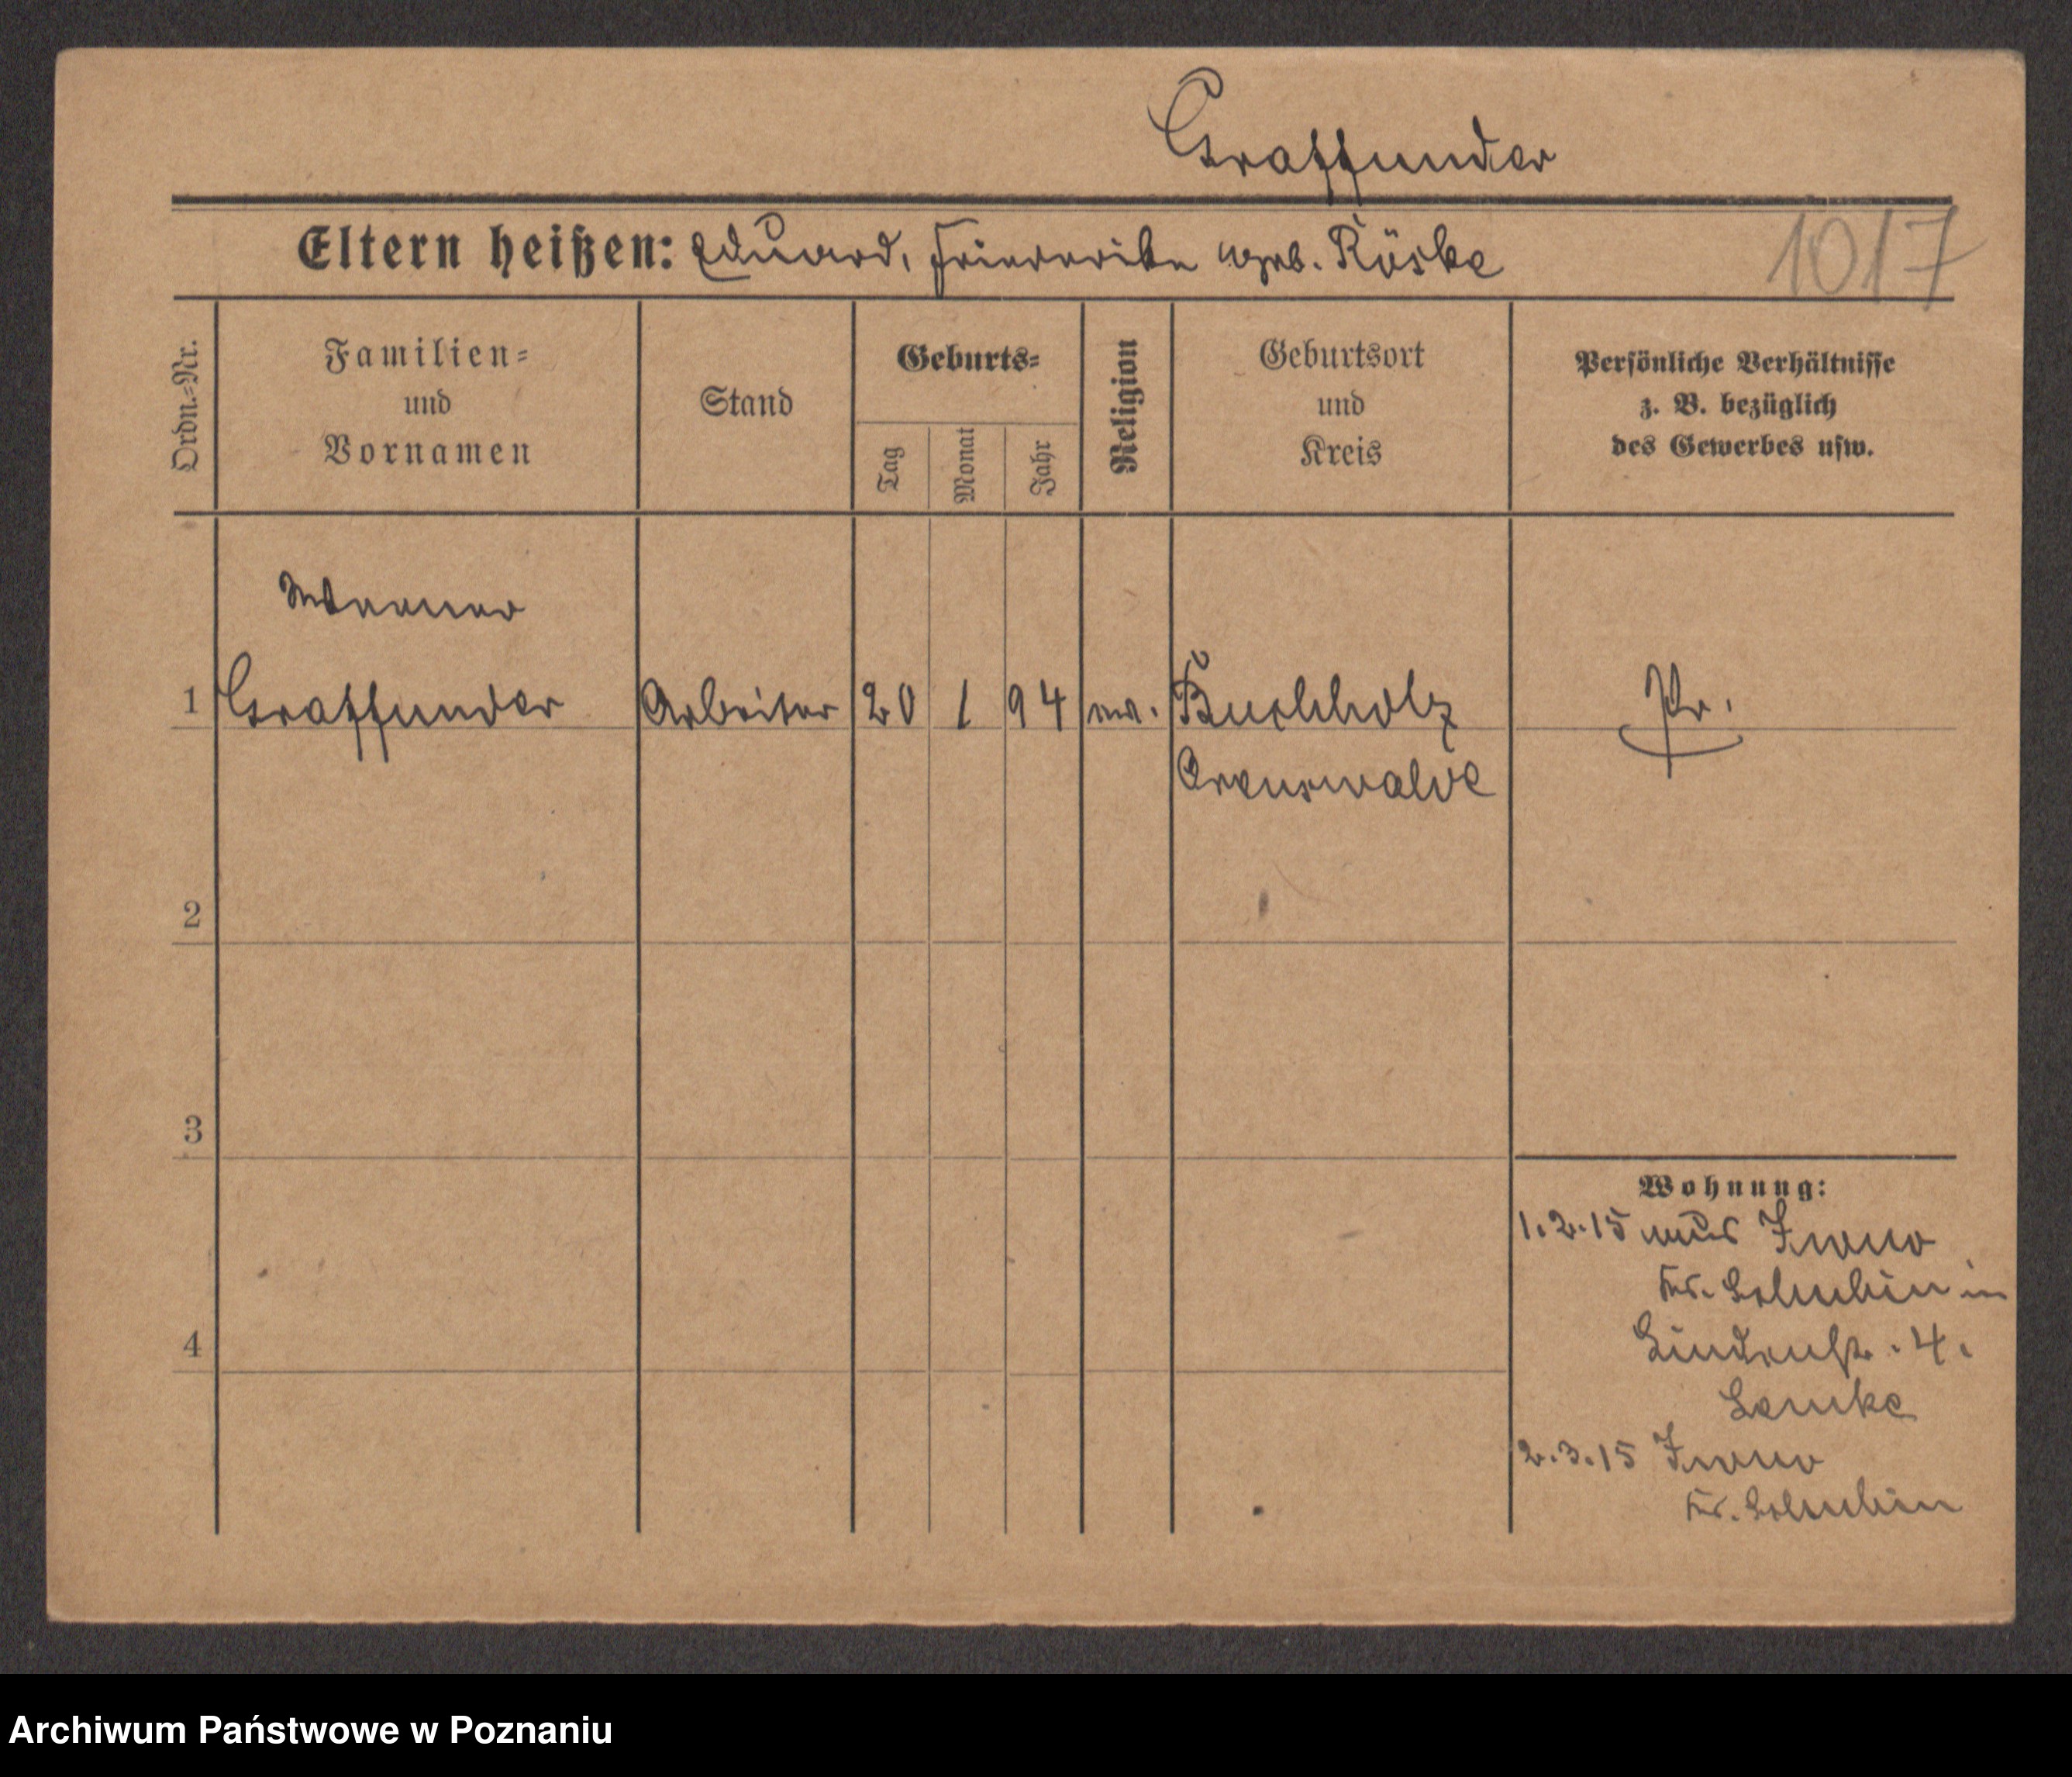 Graffunder
Eltern heißen: Eduard, Friederike geb. Röske
1017
Ordn.=Nr.
Familien=
und
Vornamen
Stand
Geburts=
Tag
Monat
Jahr
Religion
Geburtsort
und
Kreis
Persönliche Verhältnisse
z. B. bezüglich
des Gewerbes usw.
Werner
1 Graffunder Arbeiter 20 1 94 ev. Buchholz Pr.
Arenswalde
2
3
4
Wohnung:
1.2.15 aus
Kr. Schubin in
Lindenstr. 4.
Lemke
2.3.15
Kr. Schubin
Archiwum Państwowe w Poznaniu